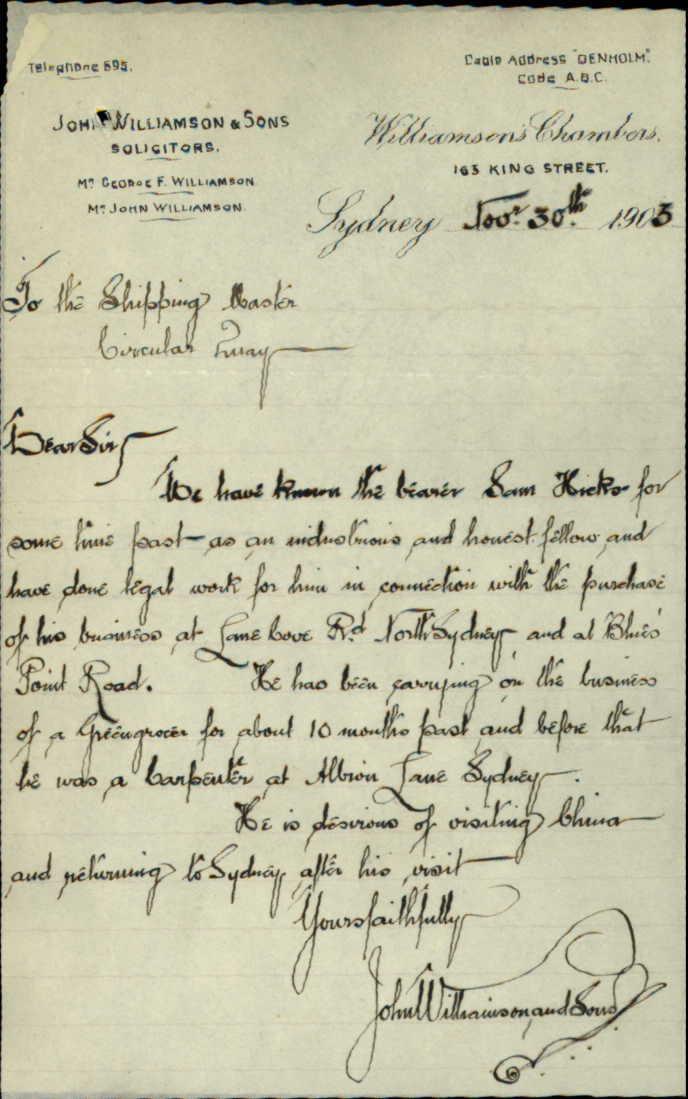 Telephone 595.
Cable Address "DENHOLM".
Code A.B.C.
JOHN WILLIAMSON & SONS
SOLICITORS.
Mr GEORGE F. WILLIAMSON
Mr JOHN WILLIAMSON.
Williamson's Chambers,
163 KING STREET.
Sydney Novr. 30th. 1903
To the Shipping Master
Circular Quay
Dear Sir
We have known the bearer Sam Hicko for
some time past as an industrious and honest fellow and
have done legal work for him in connection with the purchase
of his business at Lane Cove Rd North Sydney and at Blues
Point Road. He has been carrying on the business
of a Greengrocer for about 10 months past and before that
he was a Carpenter at Albion Lane Sydney.
He is desirous of visiting China
and returning to Sydney after his visit
Yours faithfully
John Williamson and Sons